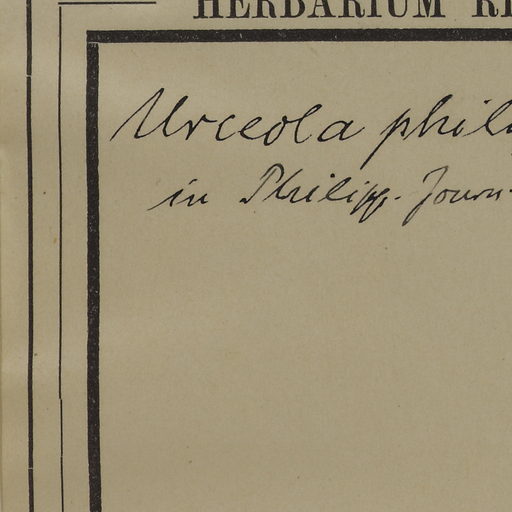 HERBARIUM
Urceola phili
in Philipp. Journ.